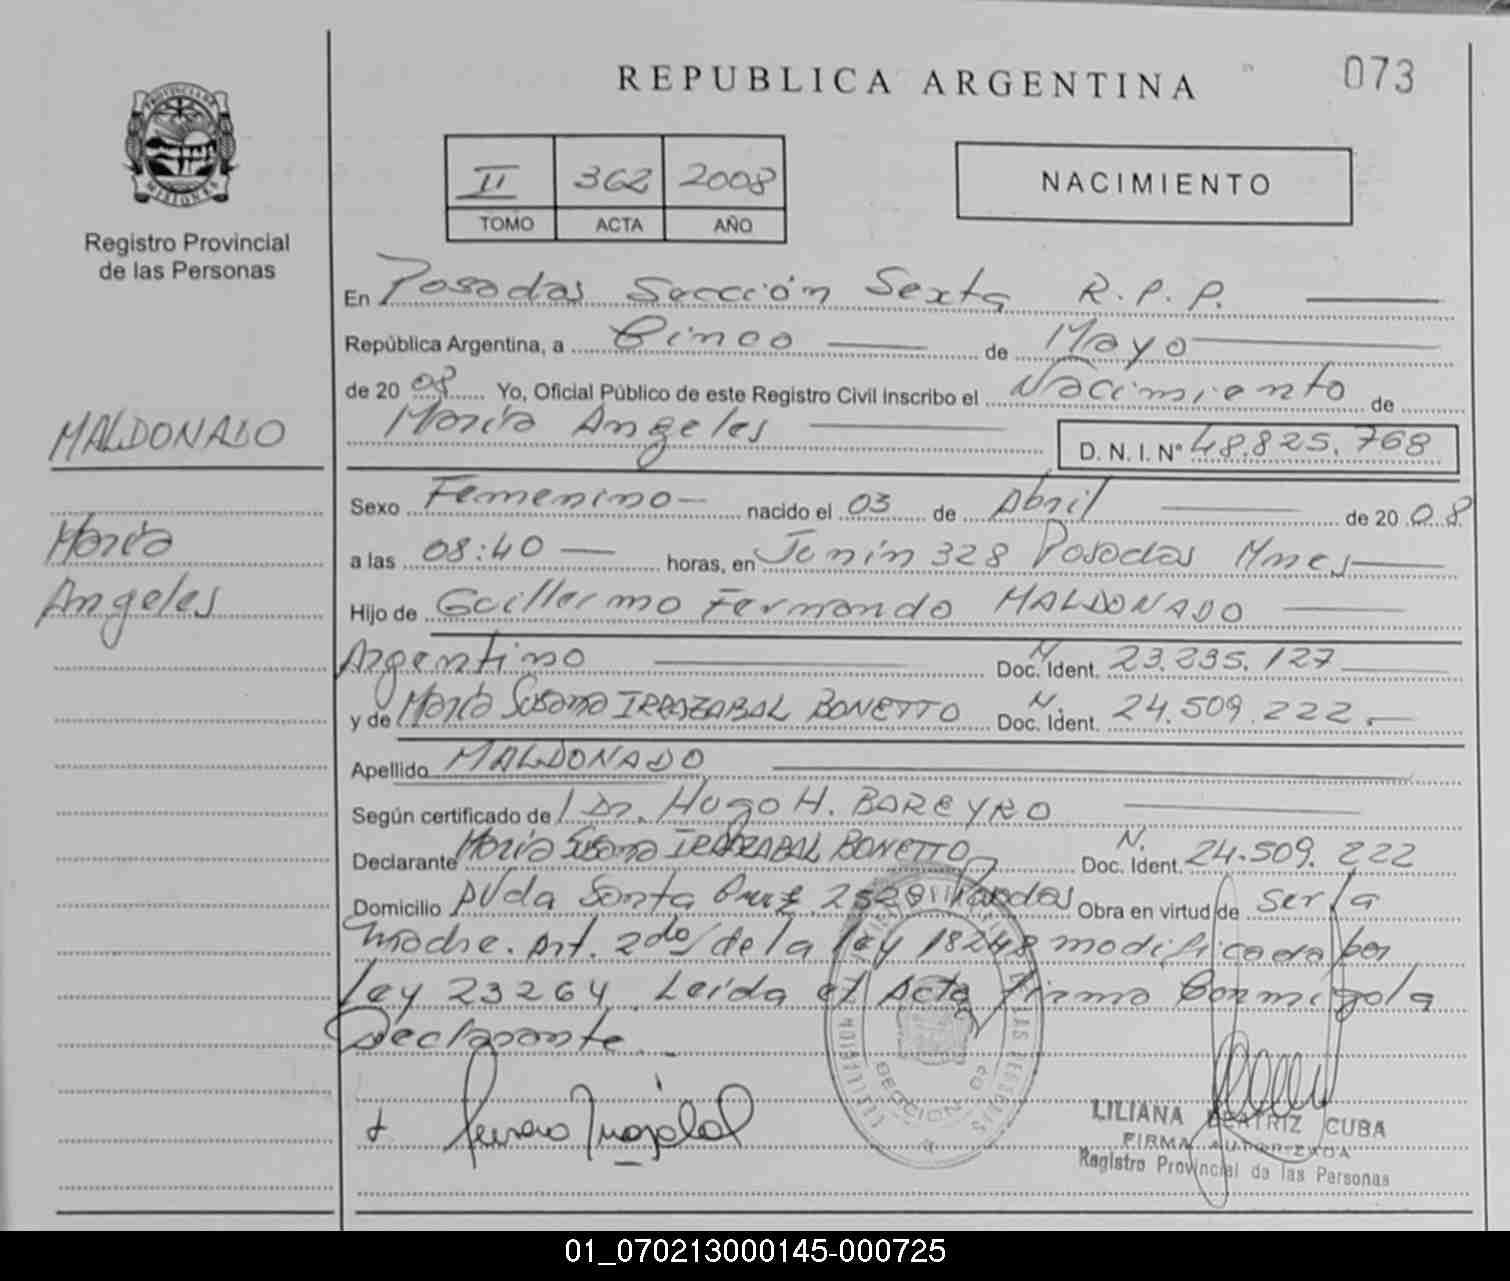 REPUBLICA ARGENTINA
073
PROVINCIA DE
MISIONES
Registro Provincial
de las Personas
II 362 2008
TOMO ACTA AÑO
NACIMIENTO
En Posadas Sección Sexta R.P.P.
República Argentina, a Cinco de Mayo
de 20 08 Yo, Oficial Público de este Registro Civil inscribo el Nacimiento de
María Angeles D. N. I. N° 48.825.768
MALDONADO
María
Angeles
Sexo Femenino nacido el 03 de Abril de 20 08
a las 08:40 horas, en Junín 328 Posadas Mnes
Hijo de Guillermo Fernando MALDONADO
Argentino N Doc. Ident. 23.235.127
y de María Susana IRRAZABAL BONETTO N. Doc. Ident. 24.509.222.-
Apellido MALDONADO
Según certificado de / Dr. Hugo H. BAREYRO
Declarante María Susana IRRAZABAL BONETTO N. Doc. Ident. 24.509.222
Domicilio AVda Santa Cruz 2529 Posadas Obra en virtud de ser la
madre. Art. 2do/ de la ley 18248 modificada por
Ley 23264. Leída el Acta firma Conmigo la
Declarante.
SECCION
LILIANA BEATRIZ CUBA
FIRMA AUTORIZADA
Registro Provincial de las Personas
01_070213000145-000725